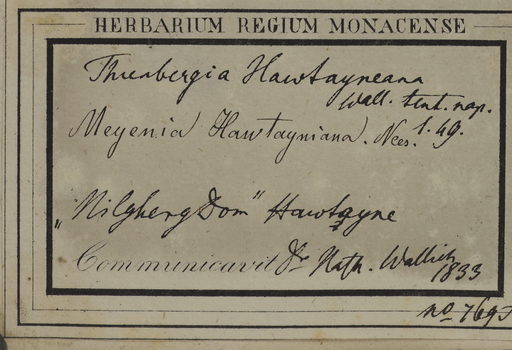 HERBARIUM REGIUM MONACENSE
Thunbergia Hawtayneana
Wall. tent. nap.
Meyenia Hawtayniana. Nees. 1. 49.
„Nilgherg Dom" Hawtayne
Communicavit Dr Nath. Wallich
1833
no 769